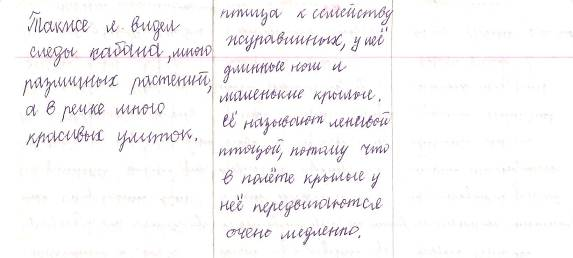 Также я видел
следы кабана, много
различных растений,
а в речке много
красивых улиток.
птица к семейству
журавлиных, у неё
длинные ноги и
маленькие крылые.
Её называют ленивой
птицой, потому что
в полёте крылые у
неё передвигаются
очень медленно.